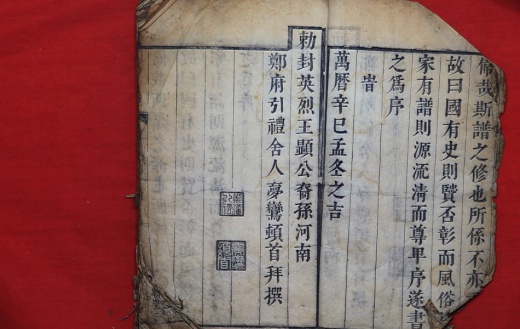 哉斯譜之修也所係不亦
故曰國有史則賢否彰而風俗
家有譜則源流清而尊卑序遂書
之爲序
旹
萬曆辛巳孟冬之吉
勅封英烈王顯公裔孫河南
鄭府引禮舍人夢鸞頓首拜撰